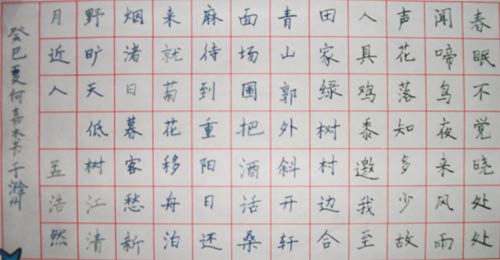 春眠不觉晓处处
闻啼鸟夜来风雨
声花落知多少故
人具鸡黍邀我至
田家绿树村边合
青山郭外斜开轩
面场圃把酒话桑
麻待到重阳日还
来就菊花移舟泊
烟渚日暮客愁新
野旷天低树江清
月近人 五浩然
癸巳夏何嘉木书于滁州